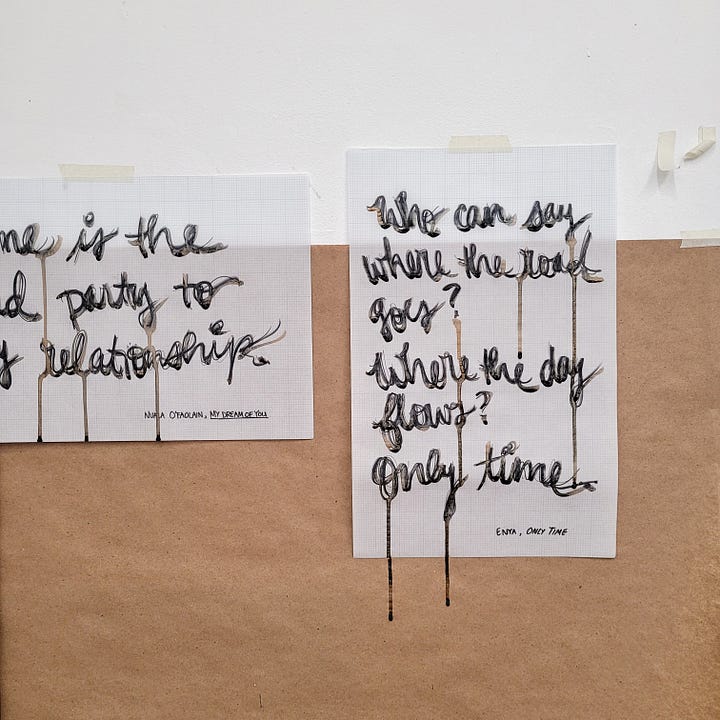 me is the
d party to
y relationship.
NUALA O'FAOLAIN, MY DREAM OF YOU
Who can say
where the road
goes?
Where the day
flows?
Only time.
ENYA, ONLY TIME